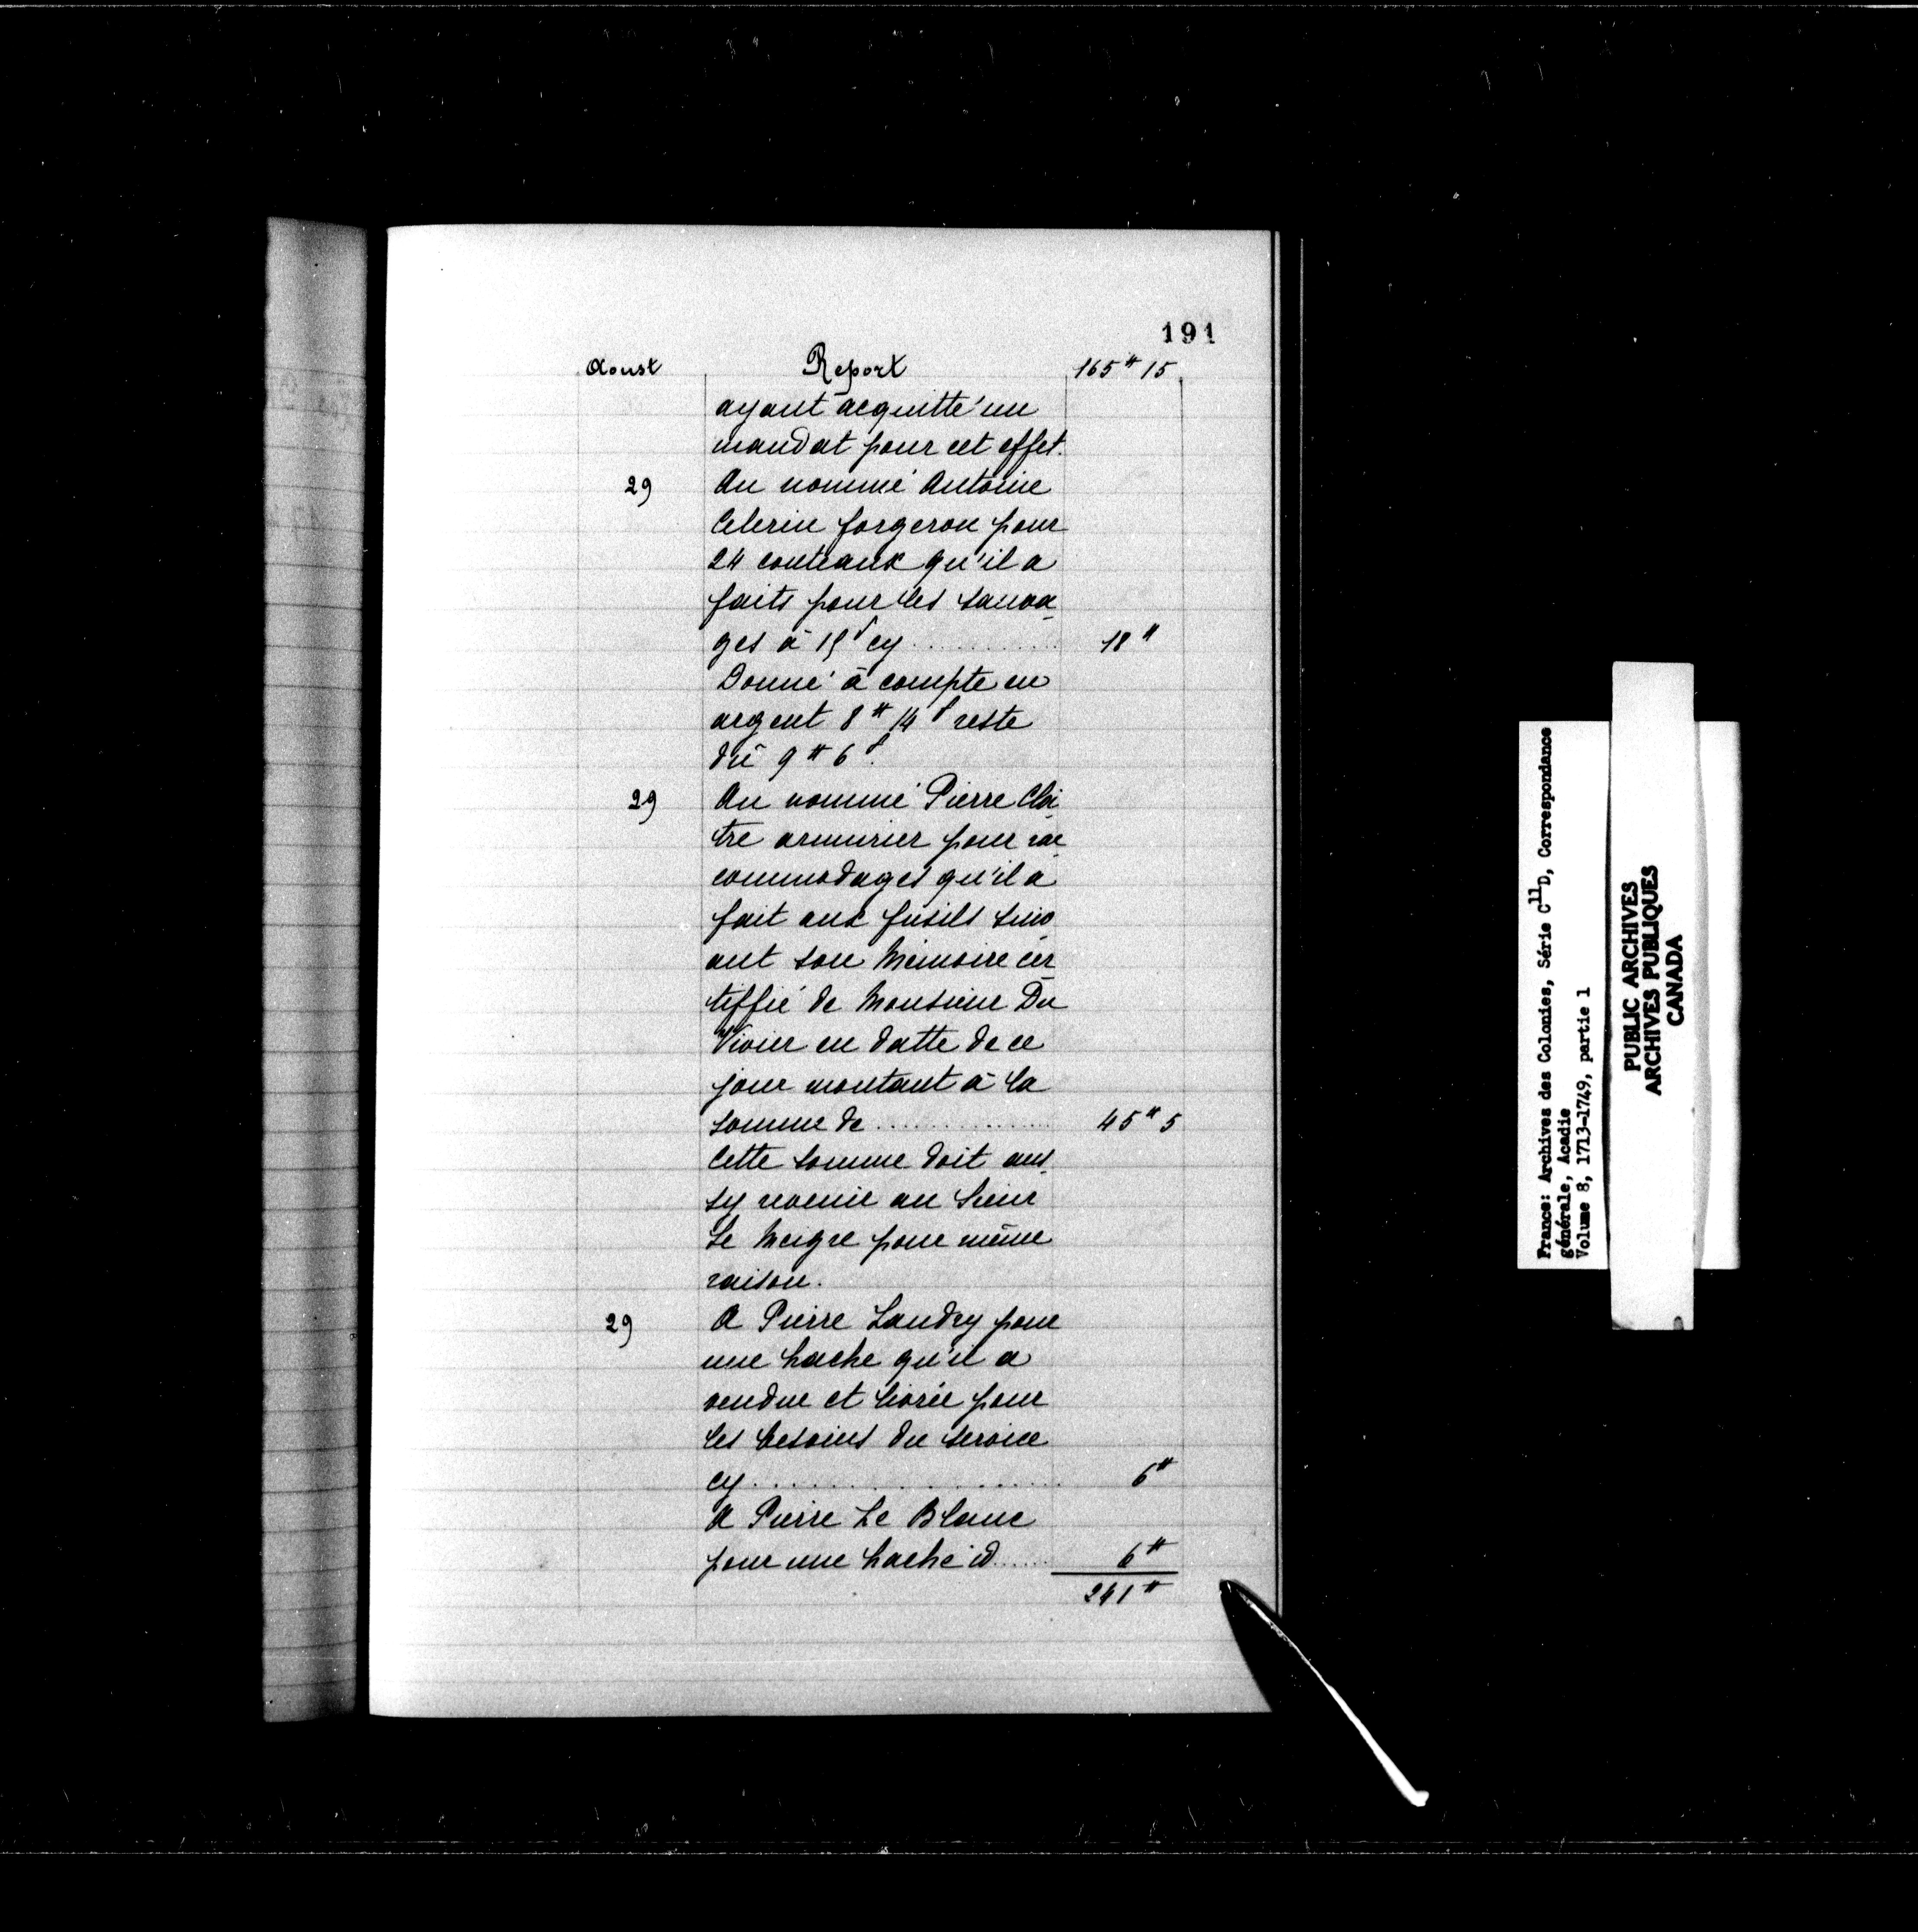 191
Aoust Report 165# 15
ayant acquitté un
mandat pour cet effet.
29 Au nommé Antoine
Celerin forgeron pour
24 couteaux qu'il a
faits pour les sauva
ges à 15ˢ cy ............ 18#
Donné à compte en
argent 8# 14ˢ reste
dû 9# 6ˢ.
29 Au nommé Pierre Cloi
tre armurier pour rac
commodages qu'il a
fait aux fusils suiv
ant son Mémoire cer
tiffié de Monsieur Du
Vivier en datte de ce
jour montant à la
somme de .............. 45# 5
Cette somme doit aus
sy revenir au Sieur
Le Meigre pour même
raison.
29 A Pierre Landry pour
une hache qu'il a
vendue et livrée pour
les besoins du service
cy .................... 6#
A Pierre Le Blanc
pour une hache id ..... 6#
241#
France: Archives des Colonies, Série C¹¹D, Correspondance
générale, Acadie
Volume 8, 1713-1749, partie 1
PUBLIC ARCHIVES
ARCHIVES PUBLIQUES
CANADA